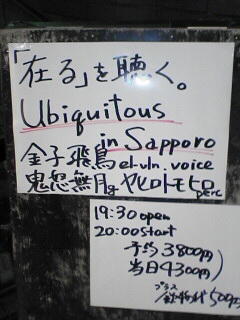 「在る」を聴く。
Ubiquitous
in Sapporo
金子飛鳥 el.vln. voice
鬼怒無月 g ヤヒロトモヒロ perc
19:30 open
20:00 start
予約 3800円
当日 4300円
プラス
/飲物代 500円